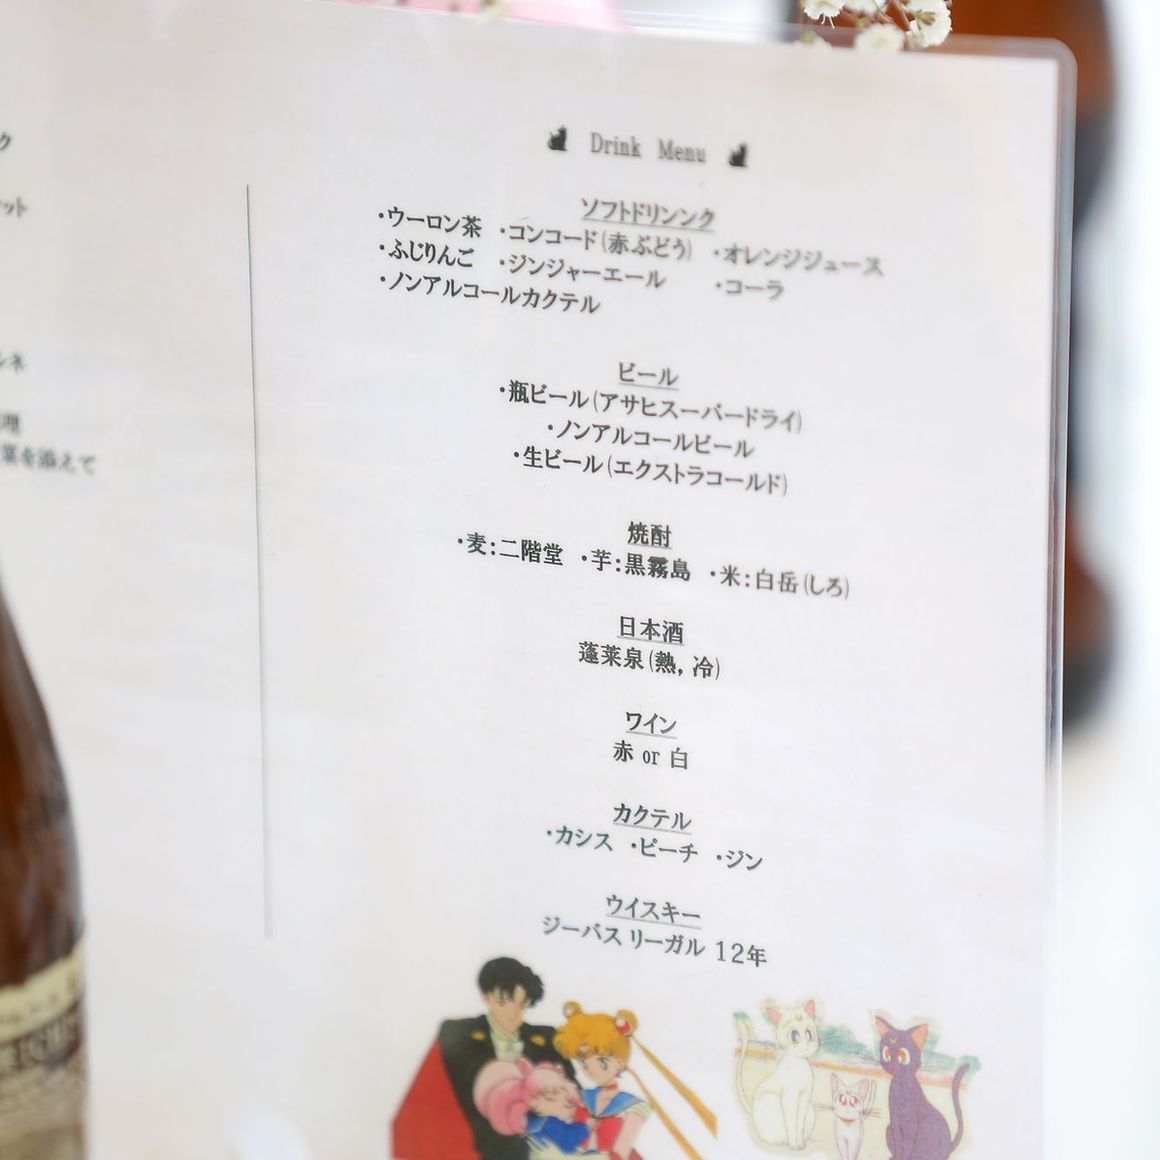 ク
ット
ルネ
理
菜を添えて
Drink Menu
ソフトドリンンク
・ウーロン茶 ・コンコード(赤ぶどう) ・オレンジジュース
・ふじりんご ・ジンジャーエール ・コーラ
・ノンアルコールカクテル
ビール
・瓶ビール(アサヒスーパードライ)
・ノンアルコールビール
・生ビール(エクストラコールド)
焼酎
・麦:二階堂 ・芋:黒霧島 ・米:白岳(しろ)
日本酒
蓬莱泉(熱, 冷)
ワイン
赤 or 白
カクテル
・カシス ・ピーチ ・ジン
ウイスキー
ジーバス リーガル 12年